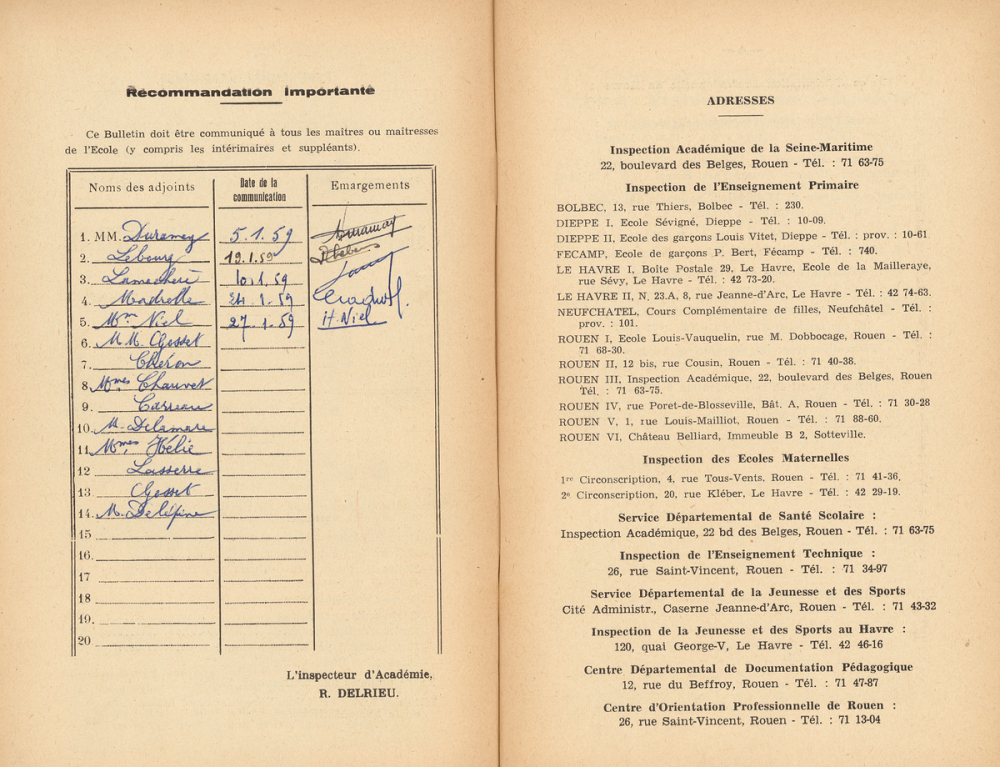 Recommandation Importante
Ce Bulletin doit être communiqué à tous les maîtres ou maîtresses
de l'Ecole (y compris les intérimaires et suppléants).
Noms des adjoints
Date de la
communication
Emargements
1. MM. Duramey 5.1.59
2. Lebourg 19.1.59
3. 10.1.59
4. Madrelle 24.1.59
5. Mme Niel 27.1.59 H. Niel
6. M.M. Gosset
7. Chéron
8. Mmes Chauvet
9. Carreau
10. M. Delamare
11. Mmes Hélie
12 Lasserre
13. Gosset
14. M. Delépine
15
16.
17
18
19.
20
L'inspecteur d'Académie,
R. DELRIEU.
ADRESSES
Inspection Académique de la Seine-Maritime
22, boulevard des Belges, Rouen - Tél. : 71 63-75
Inspection de l'Enseignement Primaire
BOLBEC, 13, rue Thiers, Bolbec - Tél. : 230.
DIEPPE I, Ecole Sévigné, Dieppe - Tél. : 10-09.
DIEPPE II, Ecole des garçons Louis Vitet, Dieppe - Tél. : prov. : 10-61
FECAMP, Ecole de garçons P. Bert, Fécamp - Tél. : 740.
LE HAVRE I, Boîte Postale 29, Le Havre, Ecole de la Mailleraye,
rue Sévy, Le Havre - Tél. : 42 73-20.
LE HAVRE II, N. 23.A, 8, rue Jeanne-d'Arc, Le Havre - Tél. : 42 74-63.
NEUFCHATEL, Cours Complémentaire de filles, Neufchâtel - Tél. :
prov. : 101.
ROUEN I, Ecole Louis-Vauquelin, rue M. Dobbocage, Rouen - Tél. :
71 68-30.
ROUEN II, 12 bis, rue Cousin, Rouen - Tél. : 71 40-38.
ROUEN III, Inspection Académique, 22, boulevard des Belges, Rouen
Tél. : 71 63-75.
ROUEN IV, rue Poret-de-Blosseville, Bât. A, Rouen - Tél. : 71 30-28
ROUEN V, 1, rue Louis-Mailliot, Rouen - Tél. : 71 88-60.
ROUEN VI, Château Belliard, Immeuble B 2, Sotteville.
Inspection des Ecoles Maternelles
1re Circonscription, 4, rue Tous-Vents, Rouen - Tél. : 71 41-36.
2e Circonscription, 20, rue Kléber, Le Havre - Tél. : 42 29-19.
Service Départemental de Santé Scolaire :
Inspection Académique, 22 bd des Belges, Rouen - Tél. : 71 63-75
Inspection de l'Enseignement Technique :
26, rue Saint-Vincent, Rouen - Tél. : 71 34-97
Service Départemental de la Jeunesse et des Sports
Cité Administr., Caserne Jeanne-d'Arc, Rouen - Tél. : 71 43-32
Inspection de la Jeunesse et des Sports au Havre :
120, quai George-V, Le Havre - Tél. 42 46-16
Centre Départemental de Documentation Pédagogique
12, rue du Beffroy, Rouen - Tél. : 71 47-87
Centre d'Orientation Professionnelle de Rouen :
26, rue Saint-Vincent, Rouen - Tél. : 71 13-04